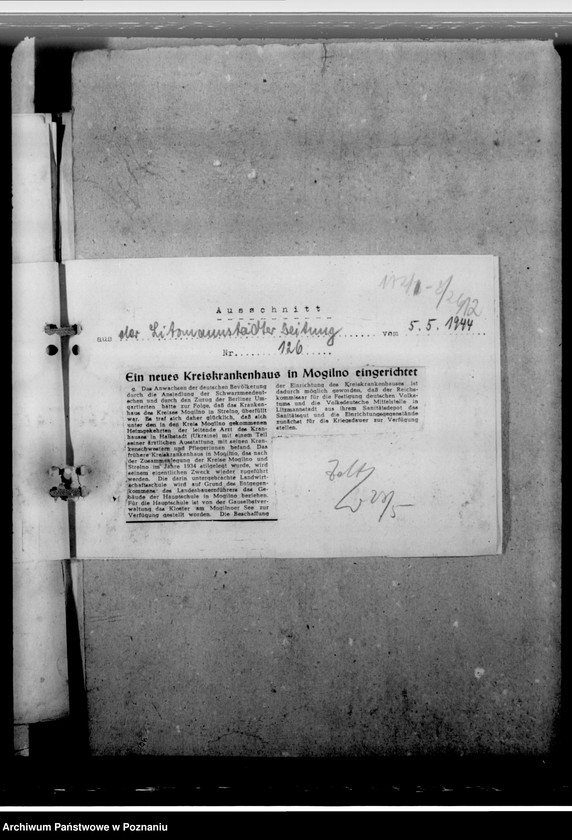 172/1-2/2612
Ausschnitt
aus der Litzmannstädter Zeitung vom 5.5.1944
Nr. 126
Ein neues Kreiskrankenhaus in Mogilno eingerichtet
o. Das Anwachsen der deutschen Bevölkerung
durch die Ansiedlung der Schwarzmeerdeut-
schen und durch den Zuzug der Berliner Um-
quartierten hatte zur Folge, daß das Kranken-
haus des Kreises Mogilno in Strelno überfüllt
war. Es traf sich daher glücklich, daß sich
unter den in den Kreis Mogilno gekommenen
Heimgekehrten der leitende Arzt des Kran-
kenhauses in Halbstadt (Ukraine) mit einem Teil
seiner ärztlichen Ausstattung, mit seinen Kran-
kenschwestern und Pflegerinnen befand. Das
frühere Kreiskrankenhaus in Mogilno, das nach
der Zusammenlegung der Kreise Mogilno und
Strelno im Jahre 1934 stillgelegt wurde, wird
seinem eigentlichen Zweck wieder zugeführt
werden. Die darin untergebrachte Landwirt-
schaftsschule wird auf Grund des Entgegen-
kommens des Landesbauernführers das Ge-
bäude der Hauptschule in Mogilno beziehen.
Für die Hauptschule ist von der Gauselbstver-
waltung das Kloster am Mogilnoer See zur
Verfügung gestellt worden. Die Beschaffung
der Einrichtung des Kreiskrankenhauses ist
dadurch möglich geworden, daß der Reichs-
kommissar für die Festigung deutschen Volks-
tums und die Volksdeutsche Mittelstelle in
Litzmannstadt aus ihrem Sanitätsdepot das
Sanitätsgut und die Einrichtungsgegenstände
zunächst für die Kriegsdauer zur Verfügung
stellen.
Archiwum Państwowe w Poznaniu